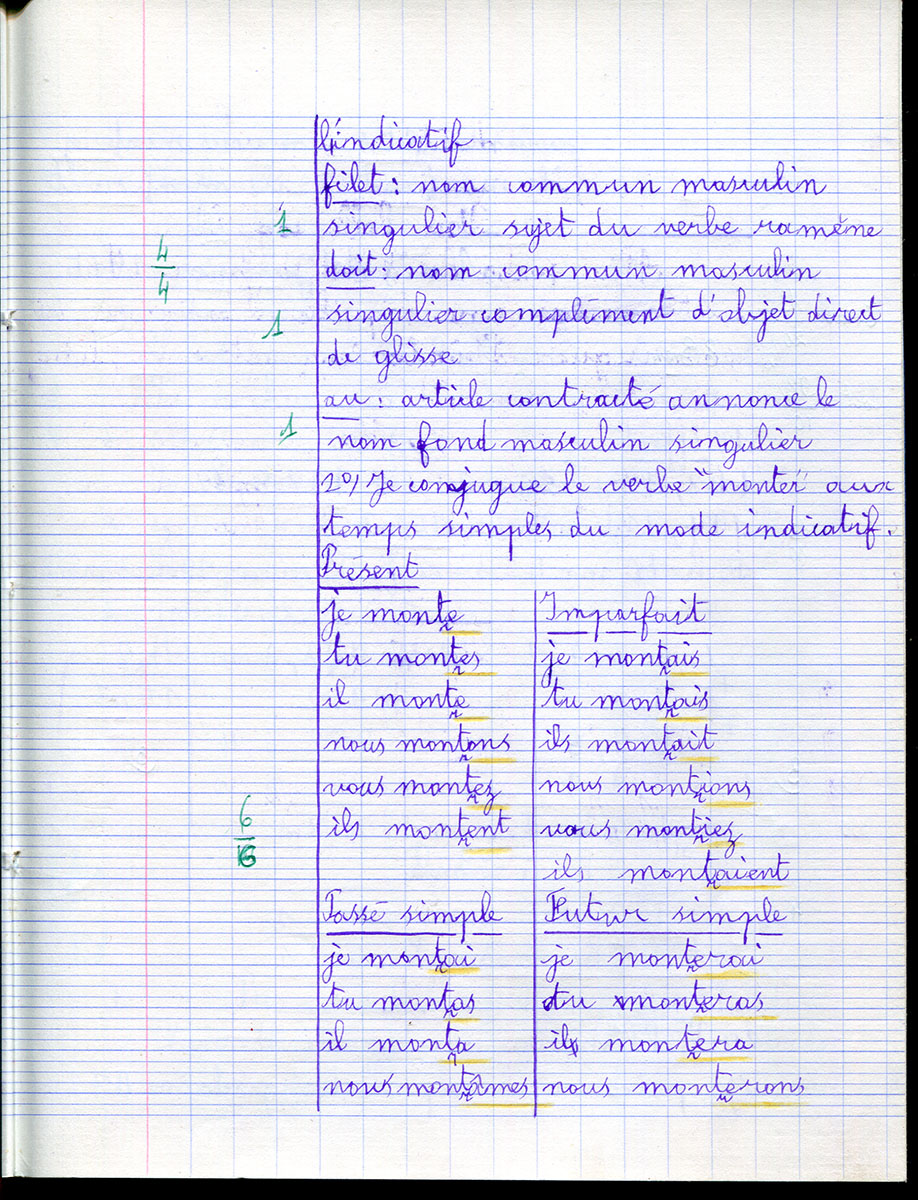 l'indicatif
filet : nom commun masculin
1 singulier sujet du verbe ramène
4/4
doit : nom commun masculin
1 singulier complément d'objet direct
de glisse
au : article contracté annonce le
1 nom fond masculin singulier
2º/ Je conjugue le verbe "monter" aux
temps simples du mode indicatif.
Présent
je monte
tu montes
il monte
nous montons
vous montez
ils montent
6/6
Imparfait
je montais
tu montais
ils montait
nous montions
vous montiez
ils montaient
Passé simple
je montai
tu montas
il monta
nous montâmes
Futur simple
je monterai
tu monteras
il montera
nous monterons